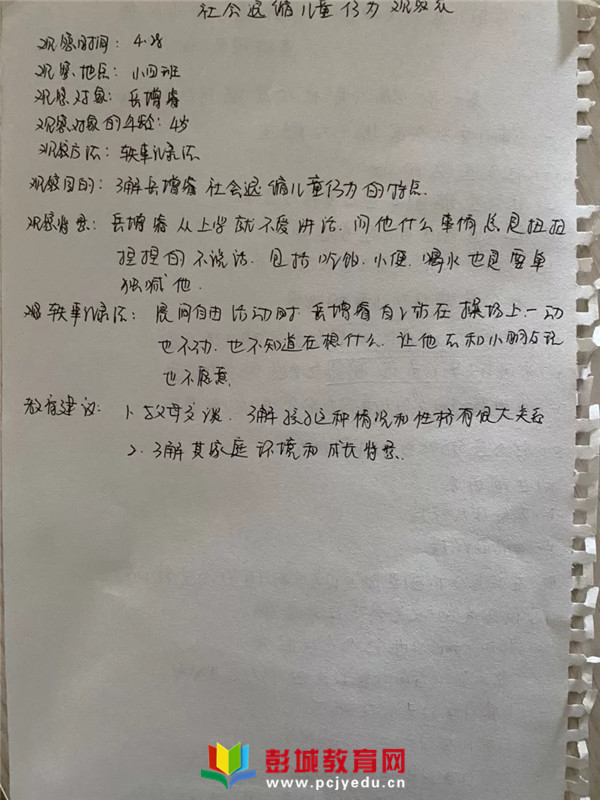 社会退缩儿童行为 观察表
观察时间：4.28
观察地点：小四班
观察对象：岳增睿
观察对象的年龄：4岁
观察方法：轶事记录法
观察目的：了解岳增睿社会退缩儿童行为的特点.
观察背景：岳增睿从上学就不爱讲话.问他什么事情总是扭扭
捏捏的不说话.包括吃饭.小便.喝水也是要单
独喊他.
轶事记录法：晨间自由活动时岳增睿自己站在操场上.一动
也不动.也不知道在想什么.让他去和小朋友玩
也不愿意.
教育建议：1.与父母交谈.了解孩子这种情况和性格有很大关系
2.了解其家庭环境和成长背景.
彭城教育网
www.pcjyedu.cn